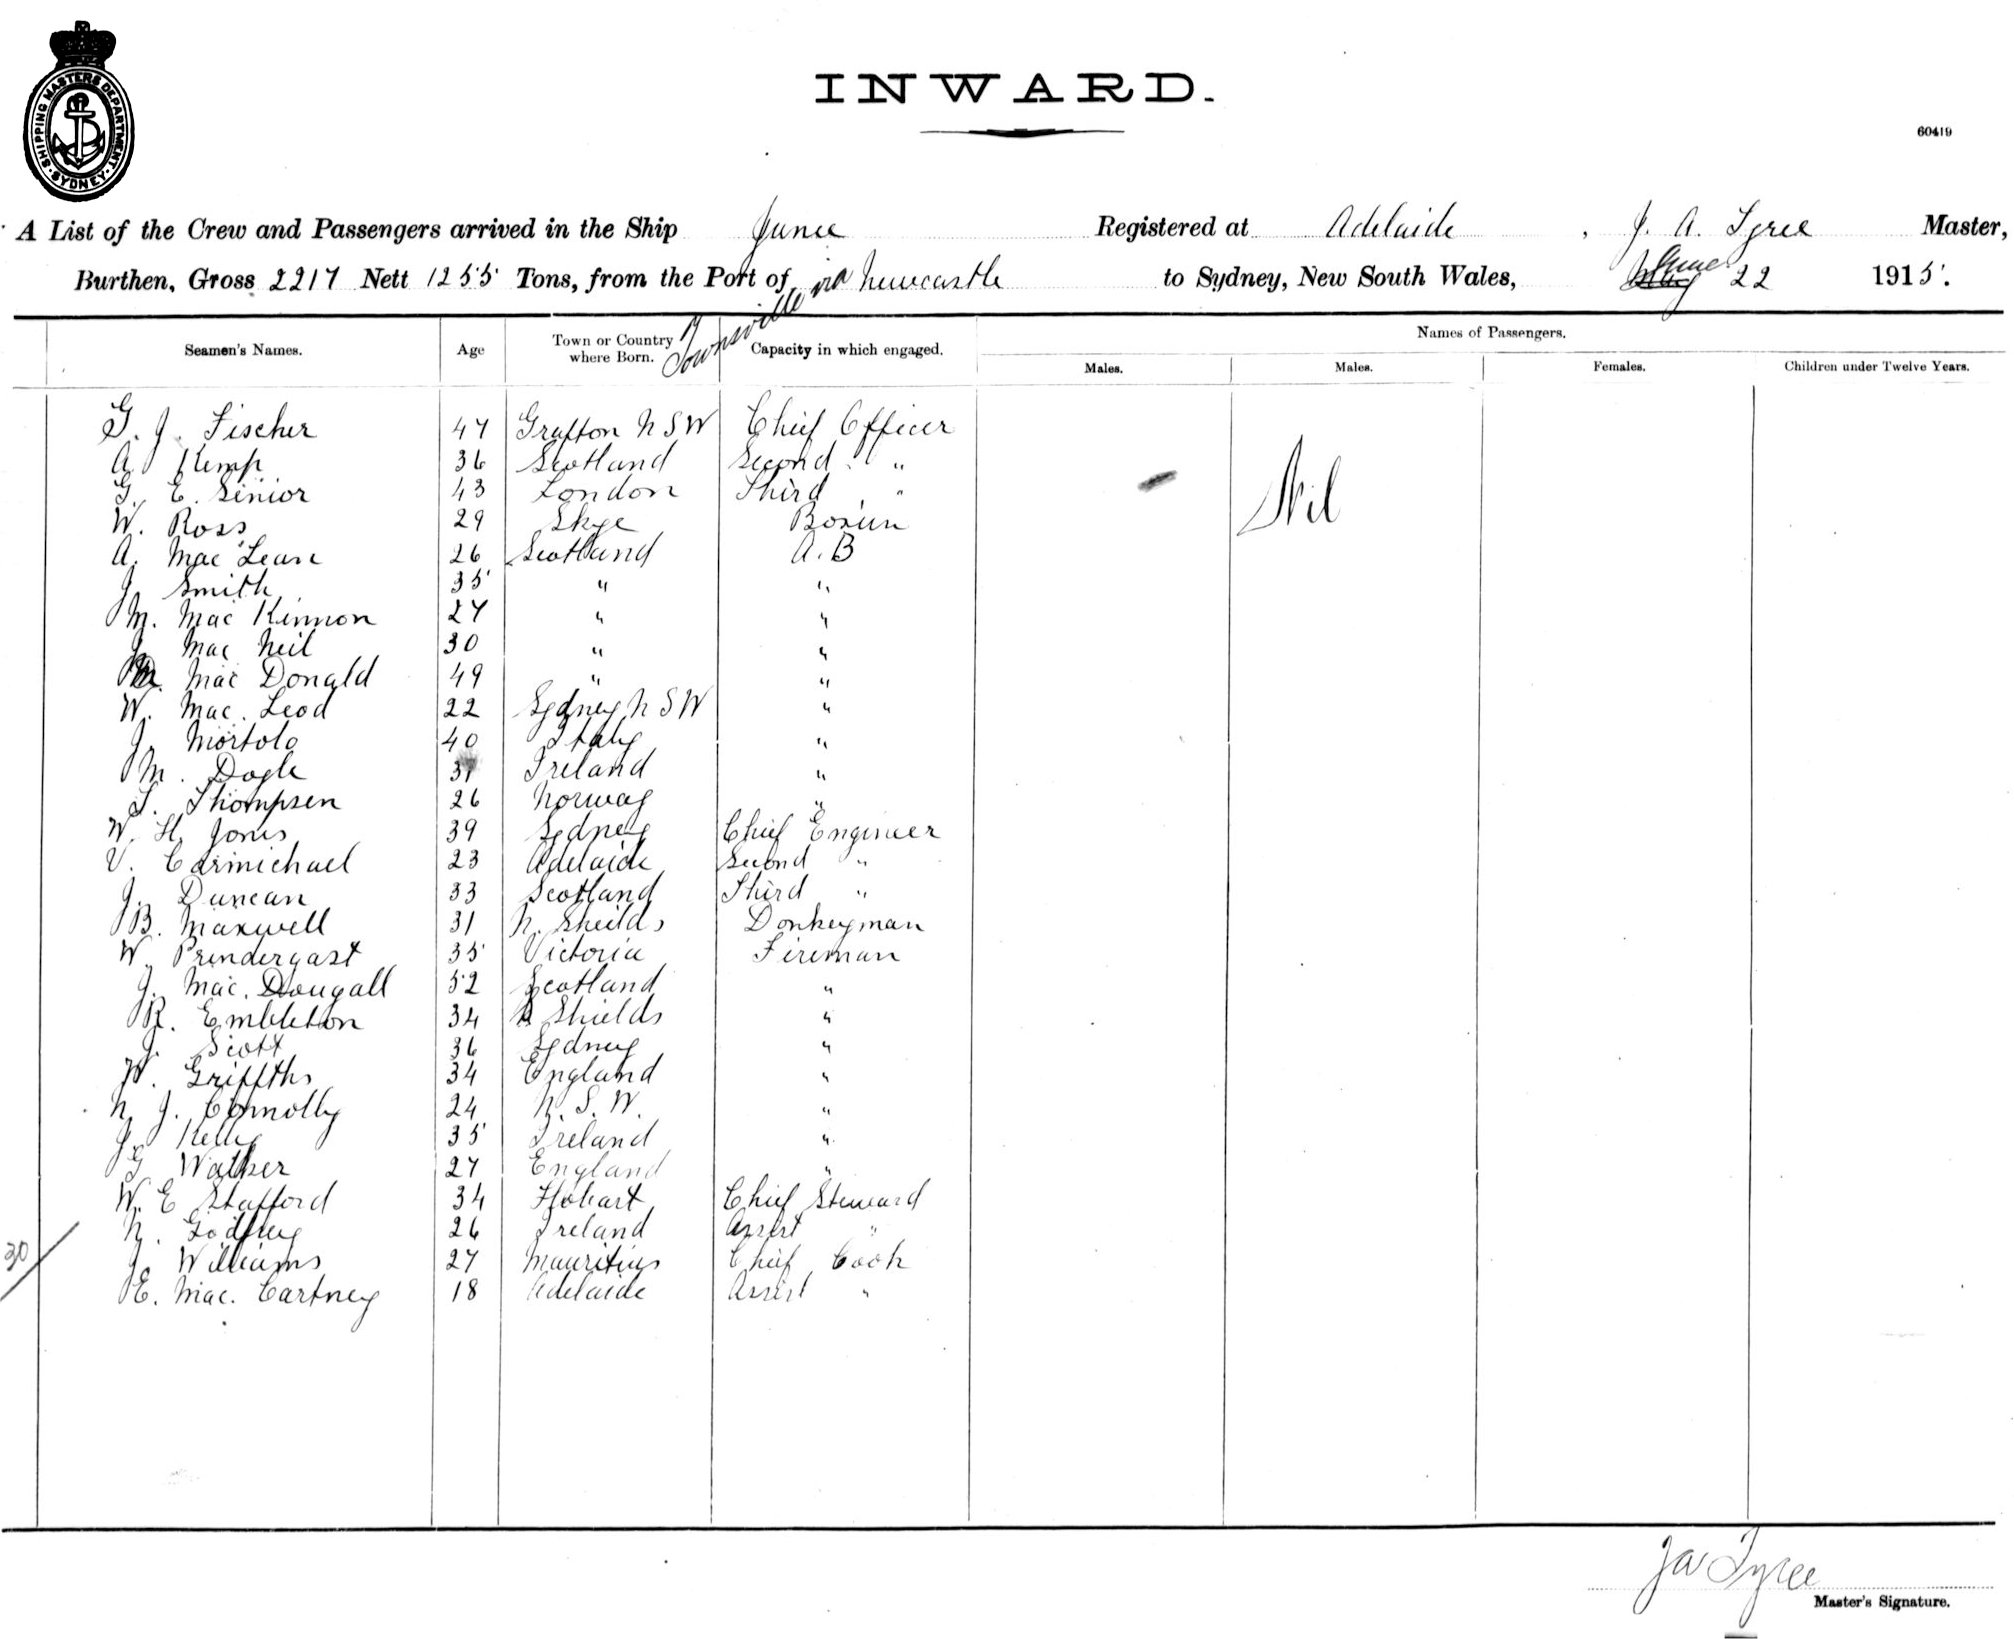 SHIPPING MASTERS DEPARTMENT · SYDNEY ·
INWARD.
60419
A List of the Crew and Passengers arrived in the Ship Junee Registered at Adelaide, J. A. Tyree Master,
Burthen, Gross 2217 Nett 1255 Tons, from the Port of Townsville via Newcastle to Sydney, New South Wales, June 22 1915.
Seamen's Names. Age Town or Country where Born. Capacity in which engaged. Names of Passengers.
Males. Males. Females. Children under Twelve Years.
G. J. Fischer 47 Grafton N S W Chief Officer
A Kemp 36 Scotland Second "
G. E. Senior 43 London Third "
Nil
W. Ross 29 Skye Bosun
A. Mac Lean 26 Scotland A. B
J. Smith 35 " "
M. Mac Kinnon 27 " "
J. Mac Neil 30 " "
Mac Donald 49 " "
W. Mac. Leod 22 Sydney N S W "
J. Mortolo 40 Italy "
M. Dogle 31 Ireland "
T. Thompsen 26 Norway "
W. H. Jones 39 Sydney Chief Engineer
V. Carmichael 23 Adelaide Second "
J. Duncan 33 Scotland Third "
B. Maxwell 31 N. Sheilds Donkeyman
W. Prendergast 35 Victoria Fireman
J. Mac. Dougall 52 Scotland "
R. Embleton 34 Shields "
J. Scott 36 Sydney "
W. Griffths 34 England "
N. J. Connolly 24 N. S. W. "
J. Kelly 35 Ireland "
G Walker 27 England "
W. E Stafford 34 Hobart Chief Steward
N. Godfrey 26 Ireland Assist "
30
J. Williams 27 Mauritius Chief Cook
E. Mac. Cartney 18 Adelaide Assist "
J A Tyree
Master's Signature.